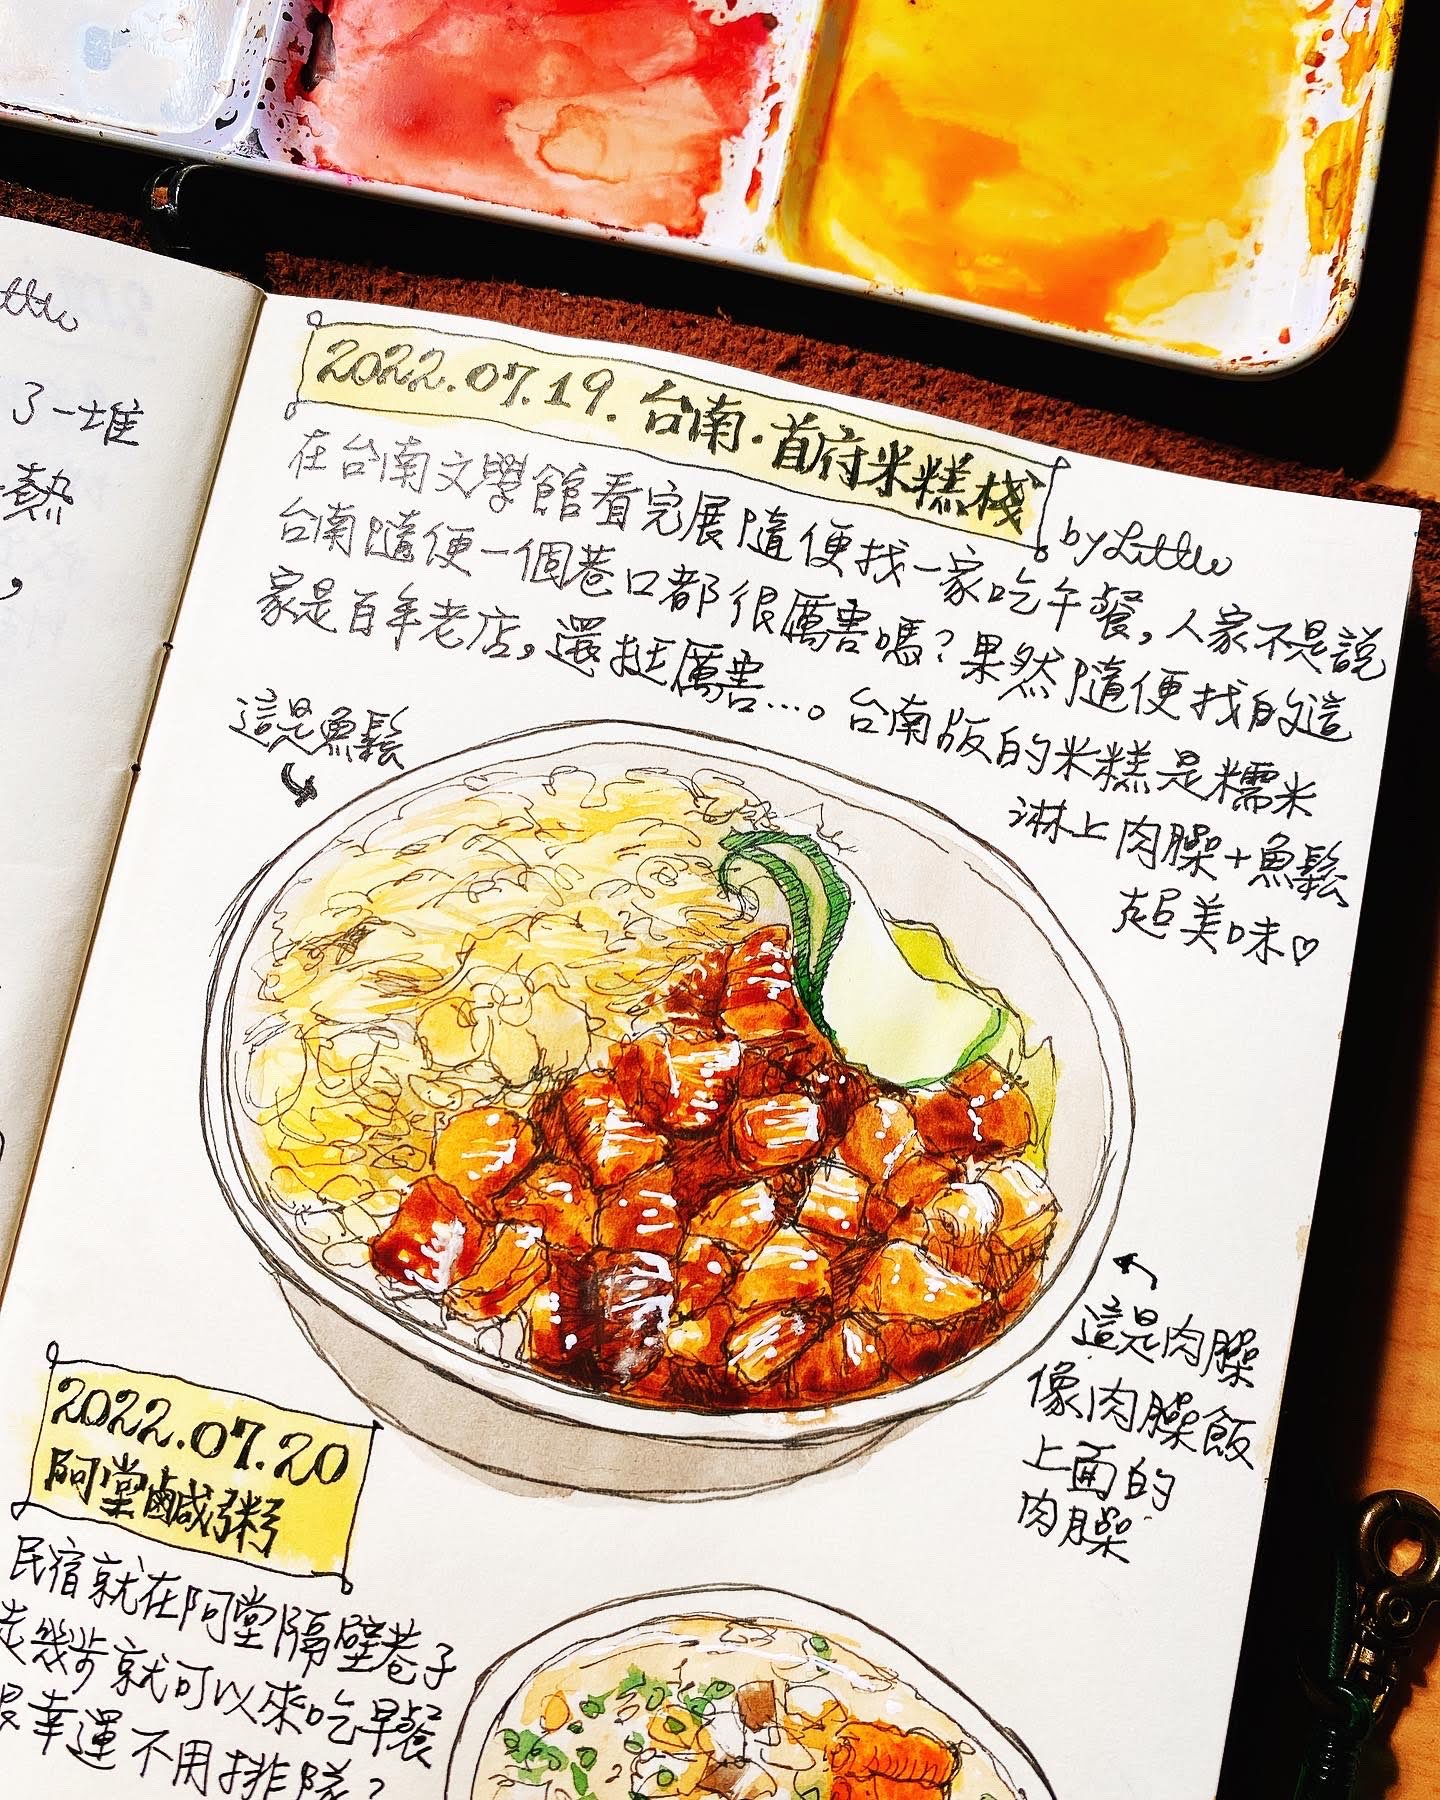 ttle
了一堆
熱
，
2022.07.19. 台南·首府米糕栈
by Little
在台南文學館看完展隨便找一家吃午餐，人家不是説
台南隨便一個巷口都很厲害嗎？果然隨便找的這
家是百年老店，還挺厲害…。台南版的米糕是糯米
淋上肉臊+魚鬆
超美味♡
這是魚鬆
這是肉臊
像肉臊飯
上面的
肉臊
2022.07.20
阿堂鹹粥
民宿就在阿堂隔壁巷子
走幾步就可以來吃早餐
很幸運不用排隊？